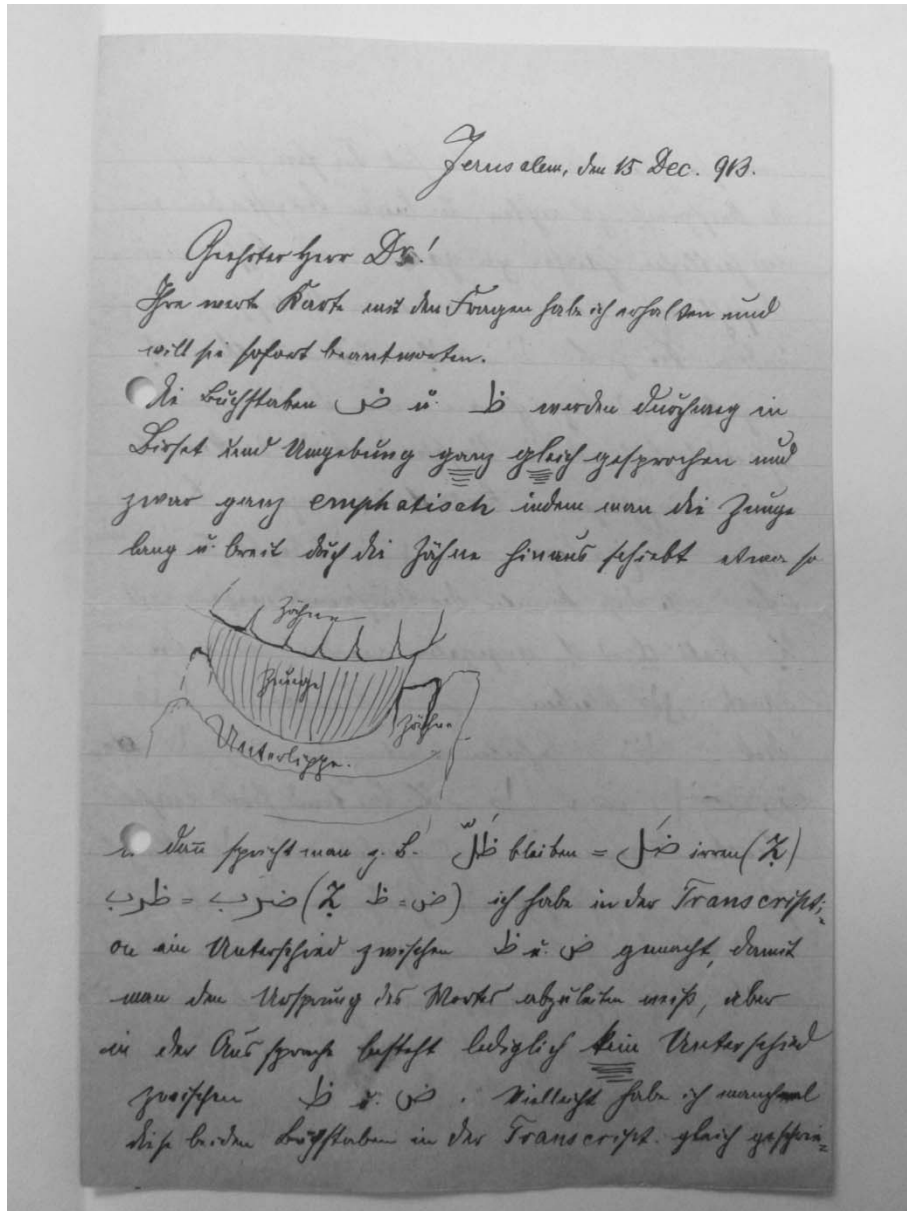 Jerusalem, den 15 Dec. 913.
Geehrter Herr Dr.!
Ihre werte Karte mit den Fragen habe ich erhalten und
will sie sofort beantworten.
Die Buchstaben ض u. ظ werden durchweg in
Birset und Umgebung ganz gleich gesprochen und
zwar ganz emphatisch indem man die Zunge
lang u. breit durch die Zähne hinaus schiebt etwa so
Zähne
Zunge
Zähne
Unterlippe.
u dann̄ spricht man z. B. ظلّ bleiben = ضل irren (ẓ)
ظرب = ضرب (ض = ظ ẓ) ich habe in der Transcripti=
on ein Unterschied zwischen ظ u. ض gemacht, damit
man den Ursprung des Wortes abzuleiten weiß, aber
in der Aussprache besteht lediglich kein Unterschied
zwischen ظ u. ض. Vielleicht habe ich manchmal
diese beiden Buchstaben in der Transcript. gleich geschrie=